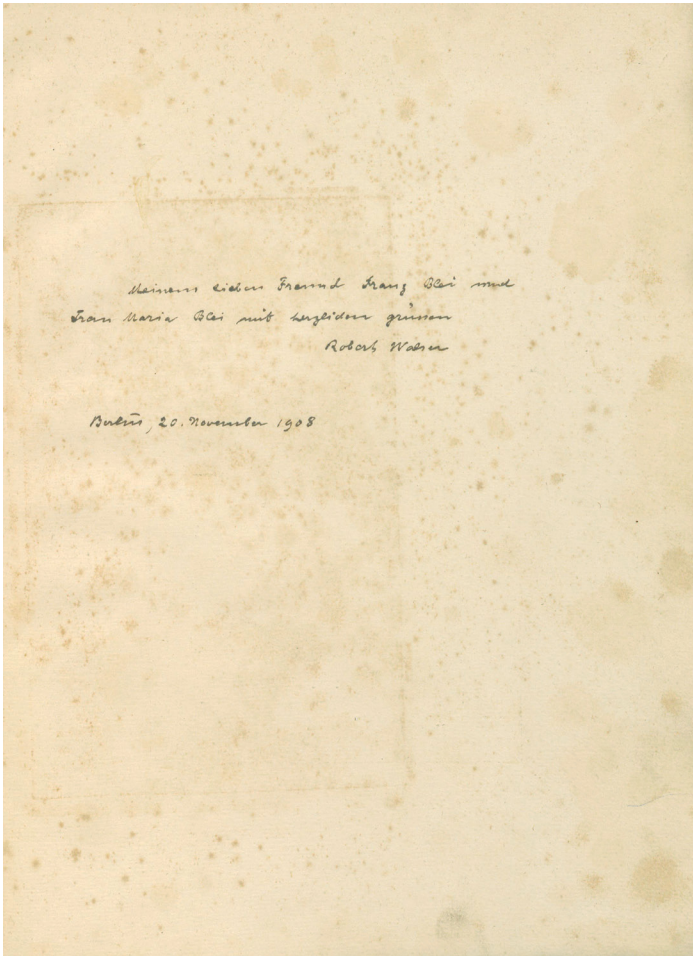 Meinem lieben Freund Franz Blei und
Frau Maria Blei mit herzlichen grüssen
Robert Walser
Berlin, 20. November 1908